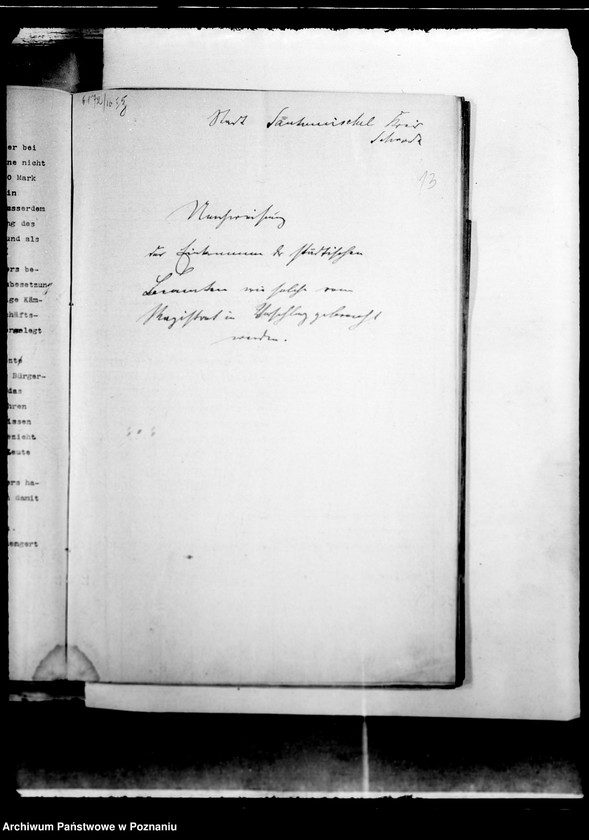 er bei
ne nicht
0 Mark
in
usserdem
ng des
und als
ers be-
besetzung
ige Käm-
häfts-
rgelegt
nte
Bürger-
das
hren
issen
nicht
leute
ers ha-
damit
angert
Stadt Santomischel Kreis
Schroda
13
Nachweisung
der Einkommen der städtischen
Beamten wie solche vom
Magistrat in Vorschlag gebracht
werden.
Archiwum Państwowe w Poznaniu